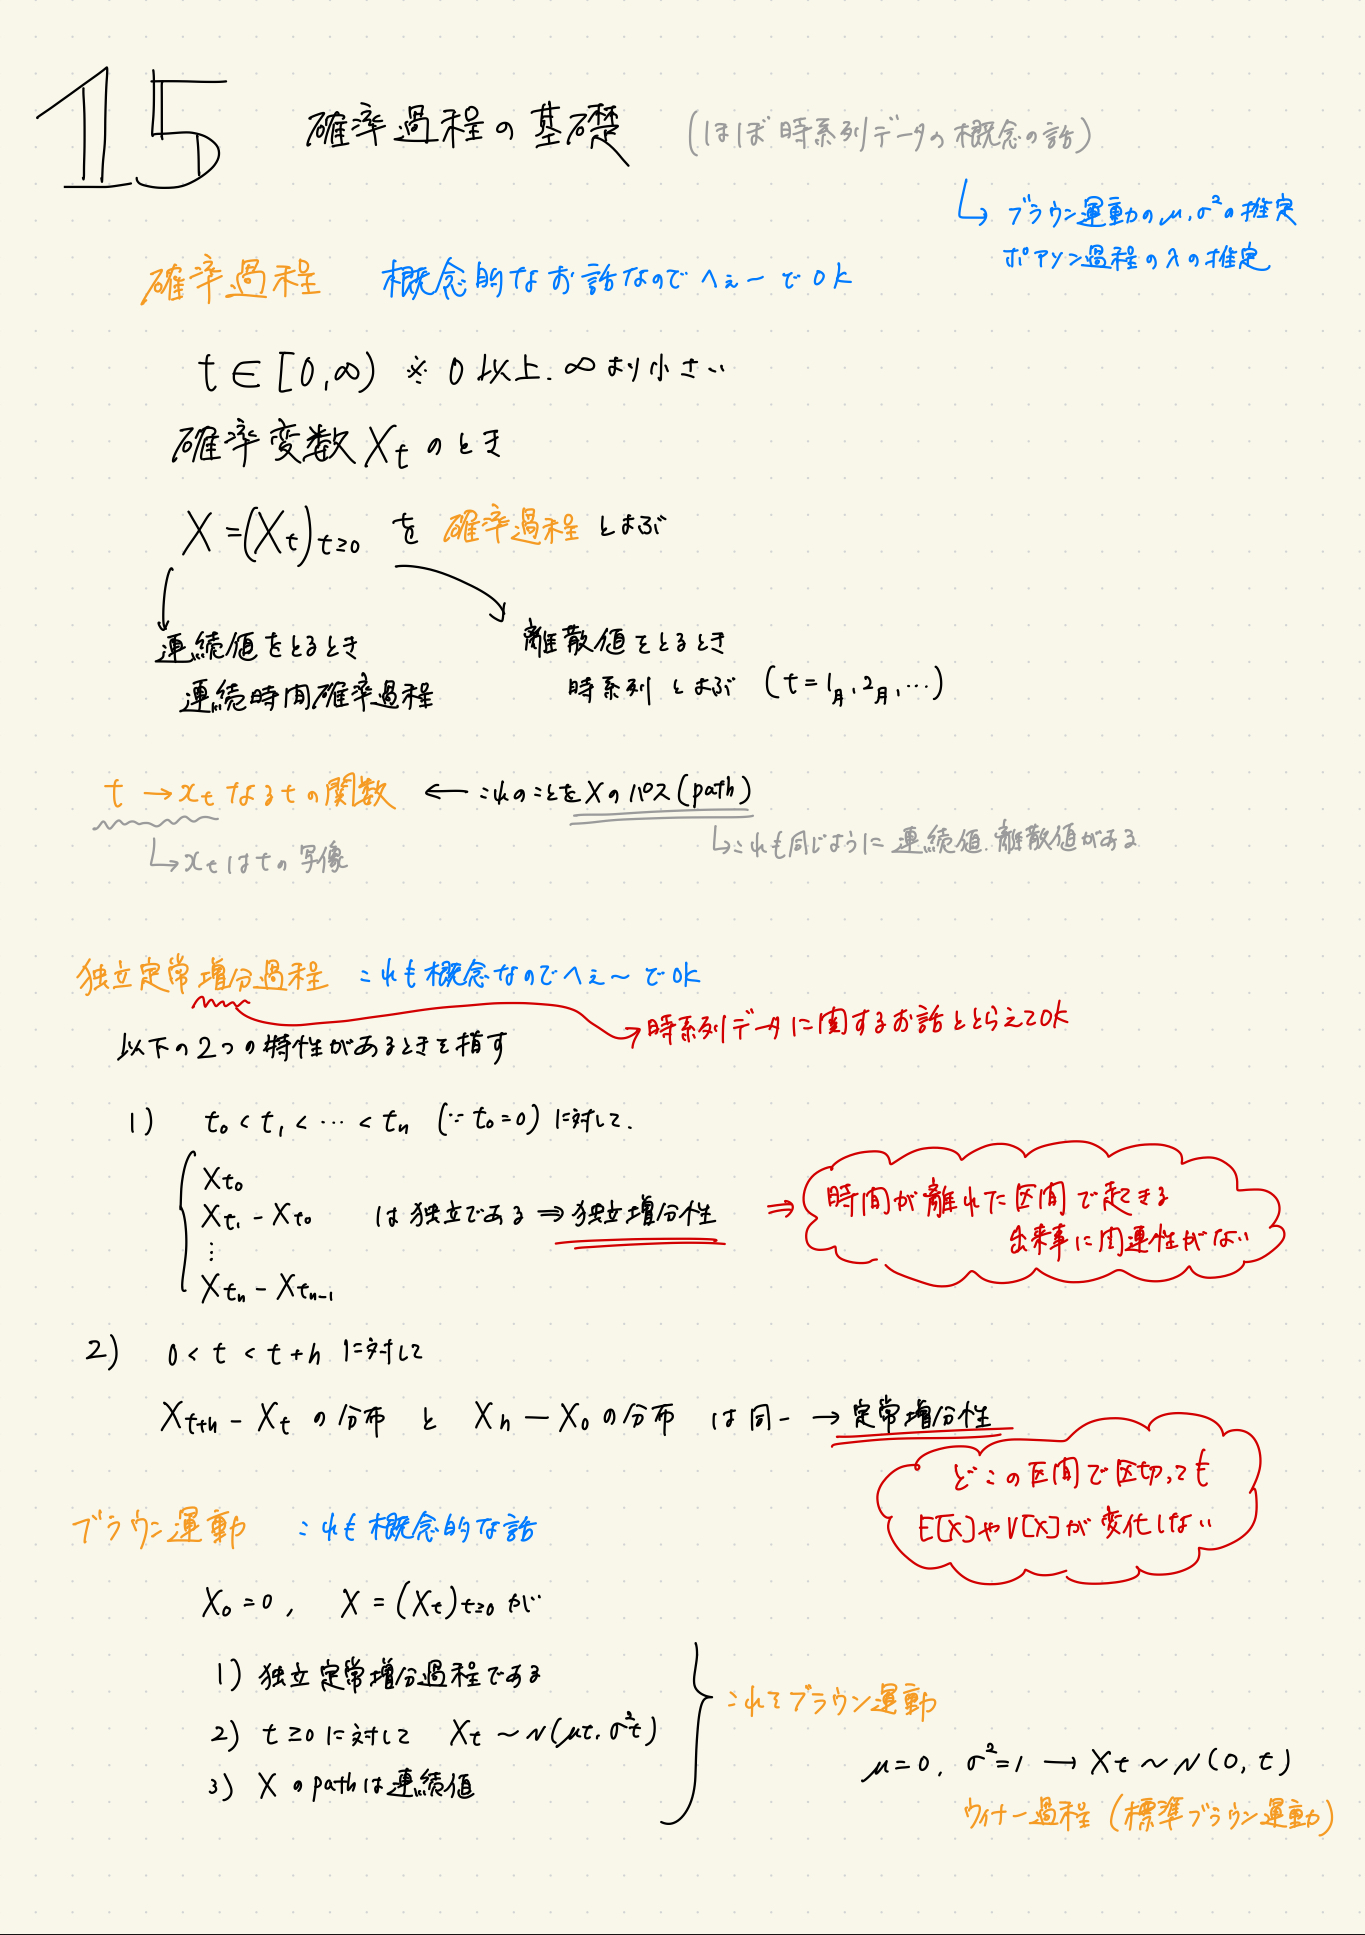 15 確率過程の基礎 (ほぼ時系列データの概念の話)
↳ ブラウン運動のμ,σ²の推定
ポアソン過程のλの推定
確率過程 概念的なお話なのでへぇーでOK
t ∈ [0,∞) ※ 0以上.∞より小さい
確率変数 Xt のとき
X = (Xt)t≥0 を 確率過程 とよぶ
連続値をとるとき
連続時間確率過程
離散値をとるとき
時系列 とよぶ (t = 1月, 2月, …)
t → xt なる t の関数 ← これのことを X の パス (path)
↳ xt は t の 写像
↳ これも同じように 連続値.離散値がある
独立定常増分過程 これも概念なのでへぇ〜でOK
→ 時系列データに関するお話ととらえてOK
以下の2つの特性があるときを指す
1) t0 < t1 < … < tn (∵ t0 = 0) に対して.
Xt0
Xt1 − Xt0
⋮
Xtn − Xtn-1
は 独立である ⇒ 独立増分性
⇒ 時間が離れた区間で起きる
出来事に関連性がない
2) 0 < t < t+h に対して
Xt+h − Xt の分布 と Xh − X0 の分布 は 同一 → 定常増分性
どこの区間で区切っても
E[X]やV[X]が変化しない
ブラウン運動 これも概念的な話
X0 = 0, X = (Xt)t≥0 が
1) 独立定常増分過程である
2) t ≥ 0 に対して Xt ~ N(μt, σ²t)
3) X の path は連続値
これをブラウン運動
μ = 0, σ² = 1 → Xt ~ N(0, t)
ウィナー過程 (標準ブラウン運動)